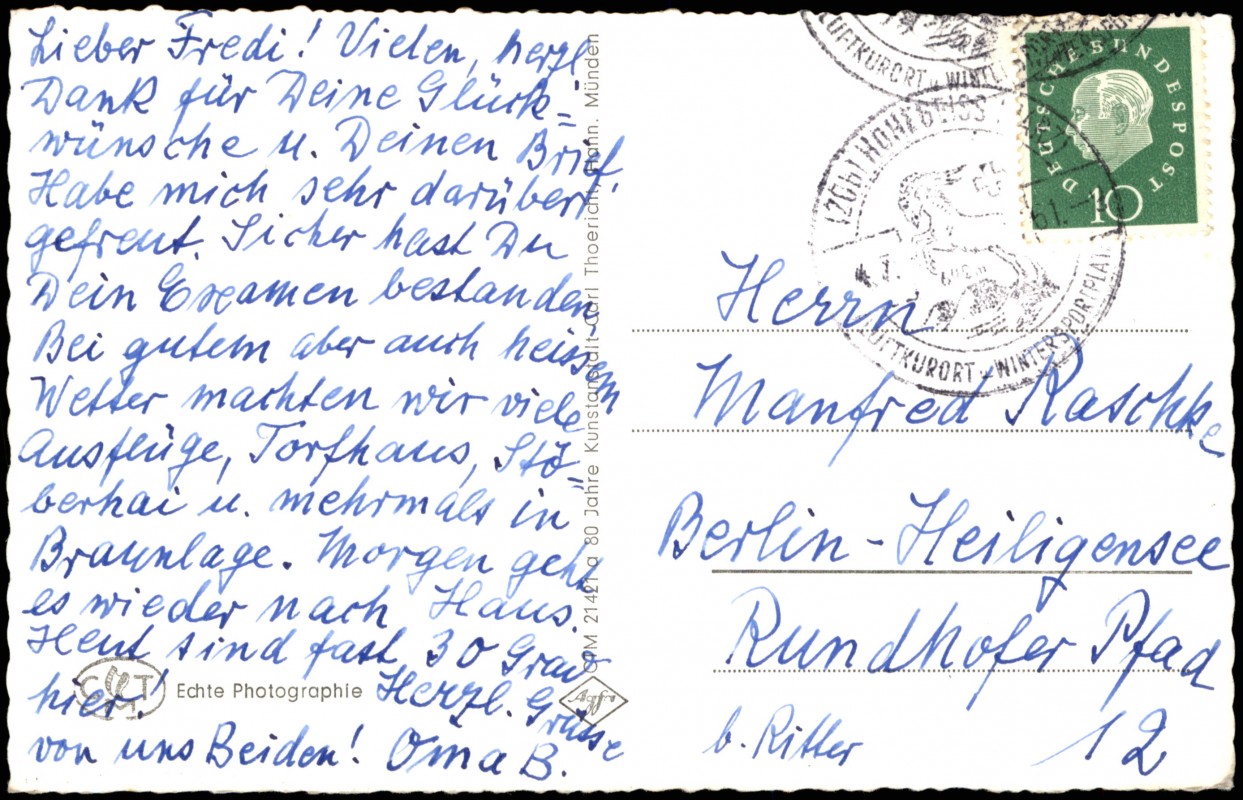 Lieber Fredi! Vielen, herzl
Dank für Deine Glück=
wünsche u. Deinen Brief,
Habe mich sehr darüber
gefreut. Sicher hast Du
Dein Examen bestanden
Bei gutem aber auch heissem
Wetter machten wir viele
Ausflüge, Torfhaus, Stö=
berhai u. mehrmals in
Braunlage. Morgen geht
es wieder nach Haus.
Heut sind fast 30 Grad
hier! Herzl. Grüsse
von uns Beiden! Oma B.
CTM Echte Photographie
Agfa
CPM 21421 a 80 Jahre Kunstanstalt Carl Thoericht, Hann. Münden
LUFTKURORT u. WINTERSPORTPLATZ
(20b) HOHEGEISS
61.
LUFTKURORT u. WINTERSPORTPLATZ
DEUTSCHE BUNDESPOST
10
Herrn
Manfred Raschke
Berlin-Heiligensee
Rundhofer Pfad
b. Ritter 12